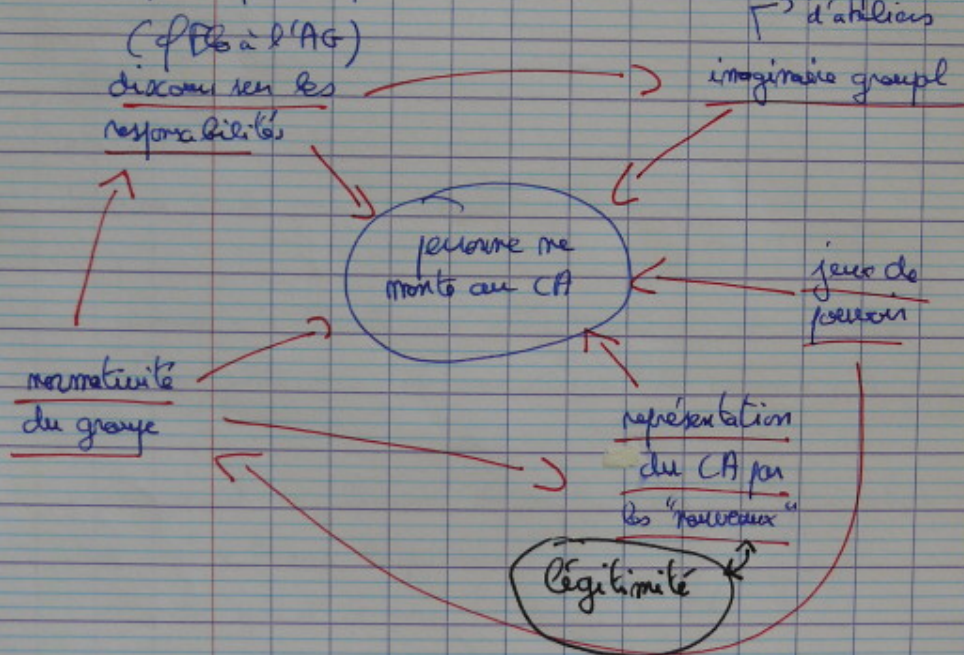 d'ateliers
à l'AG)
discours sur les
responsabilités
imaginaire groupl
personne ne
monte au CA
jeux de
pouvoir
normativité
du groupe
représentation
du CA par
les "nouveaux"
légitimité